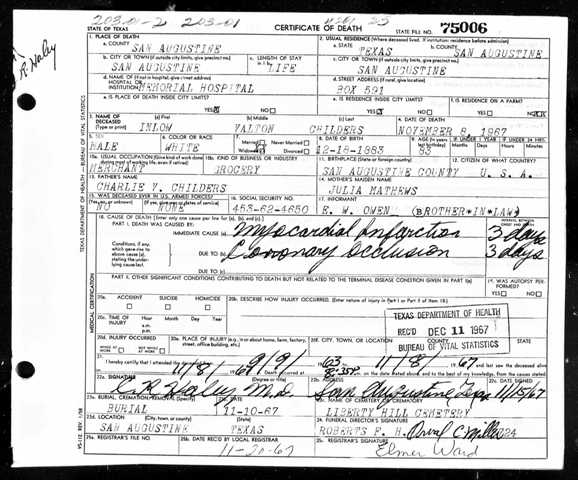 203-01-2 203-01
STATE OF TEXAS CERTIFICATE OF DEATH STATE FILE NO. 75006
R Haley
1. PLACE OF DEATH 2. USUAL RESIDENCE (Where deceased lived. If institution: residence before admission)
a. COUNTY SAN AUGUSTINE a. STATE TEXAS b. COUNTY SAN AUGUSTINE
b. CITY OR TOWN (If outside city limits, give precinct no.) c. LENGTH OF STAY c. CITY OR TOWN (If outside city limits, give precinct no.)
SAN AUGUSTINE LIFE SAN AUGUSTINE
d. NAME OF (If not in hospital, give street address) HOSPITAL OR INSTITUTION d. STREET ADDRESS (If rural, give location)
MEMORIAL HOSPITAL BOX 591
e. IS PLACE OF DEATH INSIDE CITY LIMITS? YES NO e. IS RESIDENCE INSIDE CITY LIMITS? YES NO f. IS RESIDENCE ON A FARM? YES NO
3. NAME OF DECEASED (Type or print) (a) First (b) Middle (c) Last 4. DATE OF DEATH
INLOW VALTON CHILDERS NOVEMBER 8, 1967
5. SEX 6. COLOR OR RACE 7. Married Never Married 8. DATE OF BIRTH 9. AGE IF UNDER 1 YEAR IF UNDER 24 HRS.
MALE WHITE Widowed Divorced 12-18-1883 83 Months Days Hours Minutes
10a. USUAL OCCUPATION (Give kind of work done during most of working life, even if retired) 10b. KIND OF BUSINESS OR INDUSTRY 11. BIRTHPLACE (State or foreign country) 12. CITIZEN OF WHAT COUNTRY?
MERCHANT GROCERY SAN AUGUSTINE COUNTY U. S. A.
13. FATHER'S NAME 14. MOTHER'S MAIDEN NAME
CHARLIE V. CHILDERS JULIA MATHEWS
15. WAS DECEASED EVER IN U.S. ARMED FORCES? 16. SOCIAL SECURITY NO. 17. INFORMANT
NO NONE 463-62-4650 R. W. OWEN (BROTHER*IN*LAW)
18. CAUSE OF DEATH [Enter only one cause per line for (a), (b), and (c).] INTERVAL BETWEEN ONSET AND DEATH
PART I. DEATH WAS CAUSED BY:
IMMEDIATE CAUSE (a) Myocardial Infarction 3 days
Conditions, if any, which gave rise to above cause (a), stating the underlying cause last. DUE TO (b) Coronary Occlusion 3 days
DUE TO (c)
PART II. OTHER SIGNIFICANT CONDITIONS CONTRIBUTING TO DEATH BUT NOT RELATED TO THE TERMINAL DISEASE CONDITION GIVEN IN PART I(a) 19. WAS AUTOPSY PERFORMED? YES NO
20a. ACCIDENT SUICIDE HOMICIDE 20b. DESCRIBE HOW INJURY OCCURRED. (Enter nature of injury in Part I or Part II of item 18.)
20c. TIME OF INJURY Hour Month Day Year a.m. p.m.
TEXAS DEPARTMENT OF HEALTH
REC'D DEC 11 1967
BUREAU OF VITAL STATISTICS
20d. INJURY OCCURRED WHILE AT WORK NOT WHILE AT WORK 20e. PLACE OF INJURY (e.g., in or about home, farm, factory, street, office building, etc.) 20f. CITY, TOWN, OR LOCATION COUNTY STATE
21. I hereby certify that I attended the deceased from 9/9 1963 to 11/8 1967 and last saw the deceased alive on
11/8 1967 Death occurred at 8:35P m. on the date stated above; and to the best of my knowledge, from the causes stated.
22a. SIGNATURE (Degree or title) 22b. ADDRESS 22c. DATE SIGNED
C. R. Haley M.D. San Augustine Texas 11/15/67
23a. BURIAL, CREMATION, REMOVAL (Specify) 23b. DATE 23c. NAME OF CEMETERY OR CREMATORY
BURIAL 11-10-67 LIBERTY HILL CEMETERY
23d. LOCATION (City, town, or county) (State) 24. FUNERAL DIRECTOR'S SIGNATURE
SAN AUGUSTINE TEXAS ROBERTS F. H. Orval C. Miller
25a. REGISTRAR'S FILE NO. 25b. DATE REC'D BY LOCAL REGISTRAR 25c. REGISTRAR'S SIGNATURE
11-20-67 Elmer Ward
TEXAS DEPARTMENT OF HEALTH - BUREAU OF VITAL STATISTICS
MEDICAL CERTIFICATION
VS-112 REV. 1/58